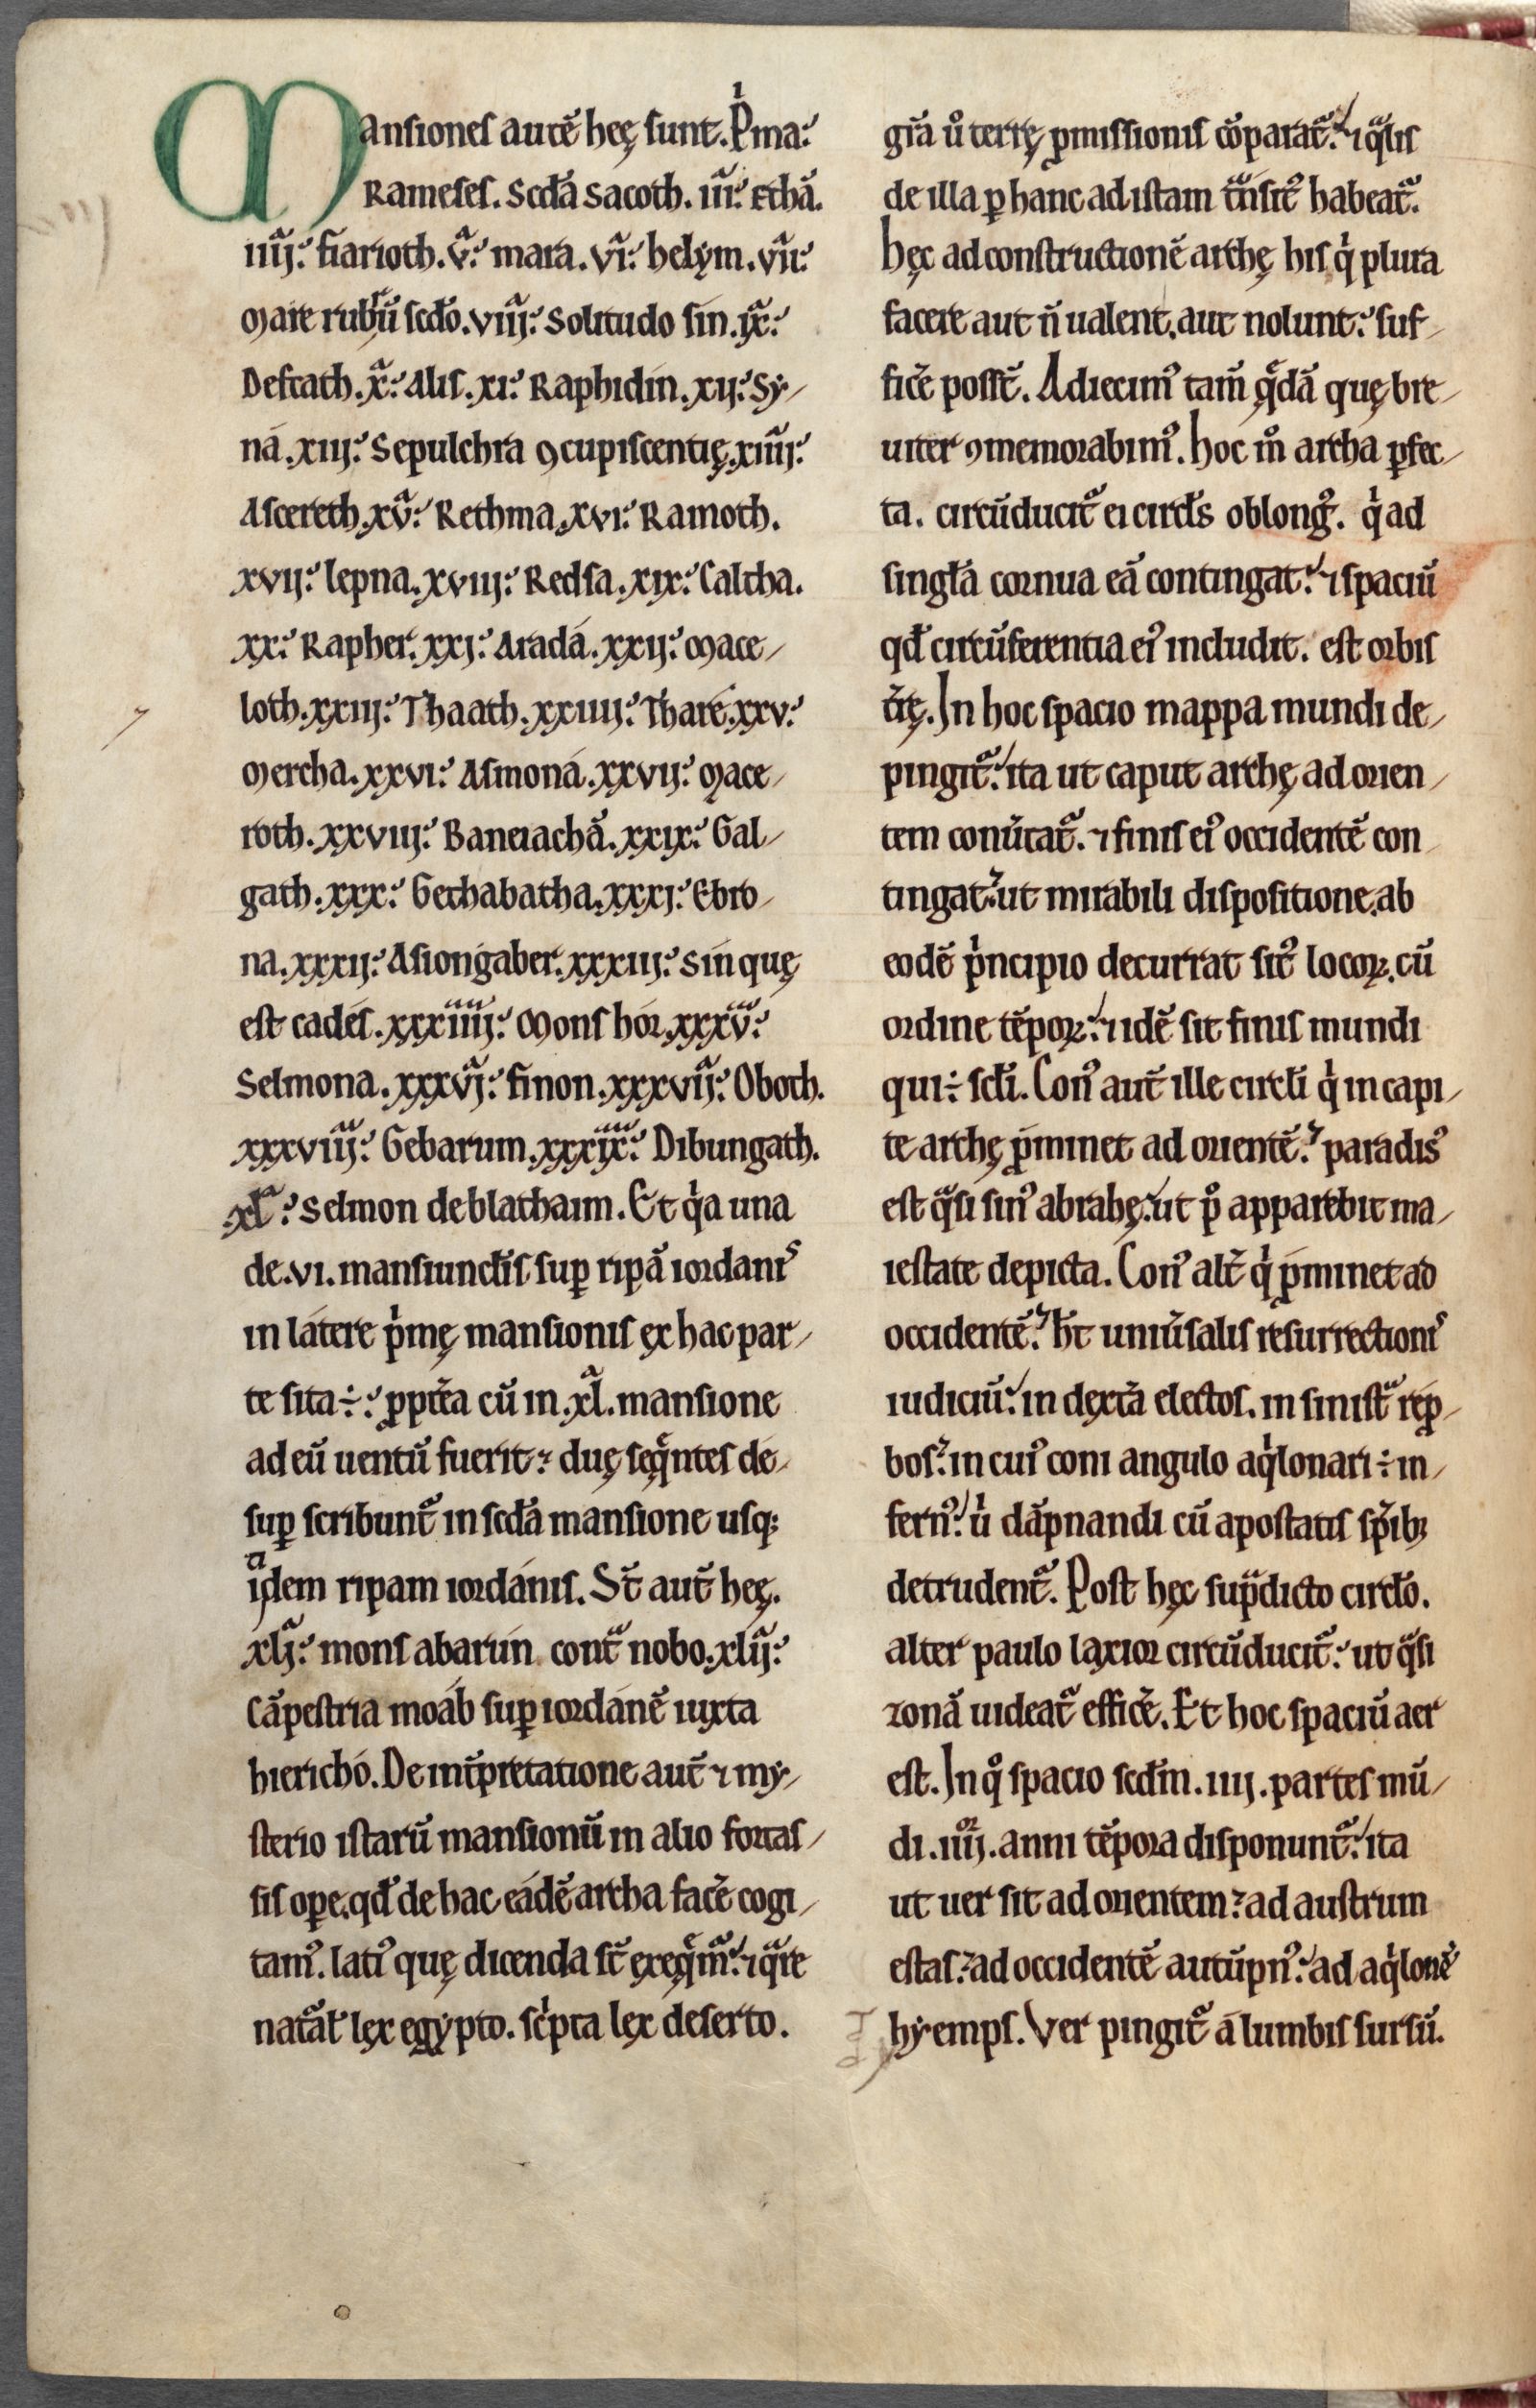 Mansiones autē hęc sunt. P̍ma:
Rameses. Scdā sacoth. iii: Ethā.
iiij: fiarioth. v: mara. vi: helym. vii:
Mare rubrū scdo. viij: Solitudo sin. ix:
Defcath. x: Alis. xi: Raphidin. xij: Sy-
na. xiij: Sepulchra ꝯcupiscentię. xiiij:
Ascereth. xv: Rethma. xvi: Ramoth.
xvij: lepna. xviij: Redsa. xix: Caltha.
xx: Rapher. xxj: Arada. xxij: Mace-
loth. xxiij: Thaath. xxiiij: Thare. xxv:
Mercha. xxvi: Asmona. xxvij: Mace-
roth. xxviij: Baneiachā. xxix: Gal-
gath. xxx: Gethabatha. xxxj: Ebro-
na. xxxij: Asiongaber. xxxiij: Sin quę
est cades. xxxiiij: Mons hor. xxxv:
Selmona. xxxvj: finon. xxxvij: Oboth.
xxxviij: Gebarum. xxxix: Dibungath.
xl: Selmon deblathaim. Et q̍a una
de .vi. mansiunctis suꝑ ripā iordanis
in latere p̍mę mansionis ex hac par-
te sita ÷: ꝓptea cū in .xl. mansione
ad eū uentū fuerit: duę seq̄ntes de-
suꝑ scribunt᷑ in scdā mansione usq;
idem ripam iordanis. St̄ aut̄ hęc.
xlj: mons abarun cont̄ nobo. xlij:
Cāpestria moab suꝑ iordanē iuxta
hiericho. De int̄pretatione aut̄ ⁊ my-
sterio istarū mansionū in alio fortas-
sis oꝑe. qd̄ de hac eadē archa facē cogi-
tam᷒. lati᷒ quę dicenda st̄ exeq̄m᷑: ⁊ q̄re
nat̄al̄ lex egypto. sc̍pta lex deserto.
gr̄a u̇ terrę ꝓmissionis cōparat᷑: ⁊ q̄lis
de illa ꝑ hanc ad istam t̄nsit᷒ habeat᷑.
hęc ad constructionē archę his q̍ plura
facere aut n̄ ualent. aut nolunt: suf-
ficē posst̄. Adiecim᷒ tam̄ q̄dā quę bre-
uiter ꝯmemorabim᷒. hoc m̊ archa ꝑfec-
ta. circūducit᷑ ei circls oblong᷒. q̍ ad
singl̄a cornua eā contingat: ⁊ spaciū
qd̄ circūferentia ei᷒ includit. est orbis
t̄rę. In hoc spacio mappa mundi de-
pingit᷑: ita ut caput archę ad orien-
tem conūtat᷑. ⁊ finis ei᷒ occidentē con-
tingat: ut mirabili dispositione. ab
eodē p̍ncipio decurrat sit᷒ locoꝝ. cū
ordine tēpoꝝ: ⁊ idē sit finis mundi
qui ÷ scl̄i. Con᷒ aut̄ ille circl̄i q̍ in capi-
te archę p̄minet ad orientē: paradis᷒
est q̄si sin᷒ abrahę: ut p᷒ apparebit ma-
iestate depicta. Con᷒ alt̄ q̍ p̄minet ad
occidentē: ht̄ uniūsalis resurrectionis
iudiciū: in dextā electos. in sinist̄ rep-
bos: in cui᷒ coni angulo aq̍lonari ÷ in-
fern᷒: u̍ dāpnandi cū apostatis sp̄ib;
detrudent᷑. Post hęc sup̄dicto circl̄o.
alter paulo laxior circūducit᷑: ut q̄si
zonā uideat᷑ efficē. Et hoc spaciū aer
est. In q̊ spacio scdm. iiij. partes mū-
di. iiij. anni tēpora disponunt᷑: ita
ut uer sit ad orientem: ad austrum
estas: ad occidentē autūpn᷒: ad aq̍lonē
hyemps. Ver pingit᷑ a lumbis sursū.